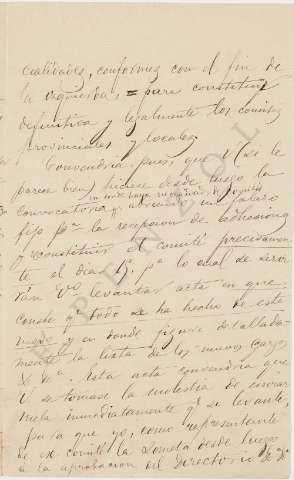 cialidades, conformes con el fin de
la izquierda, = para constituir
definitiva y legalmente los comités
provinciales y locales.
Convendría pues, que V (si le
parece bien) hiciese desde luego la
convocatoria y abriendo un plazo
fijo pª la recepcion de adhesiones
y reconstituir el comité precisamen-
te el dia 1º. pª lo cual de servi-
rán Vds levantar acta en que
conste qe todo se ha hecho de este
modo y en donde figure detallada-
mente la lista de los nuevos cargos
&ª &ª. Esta acta convendría que
V se tomase la molestia de enviar-
mela inmediatamente qe se levante,
para que yo, como representante
de ese comité la someta desde luego
a la aprobacion del directorio de
ESPAÑOL